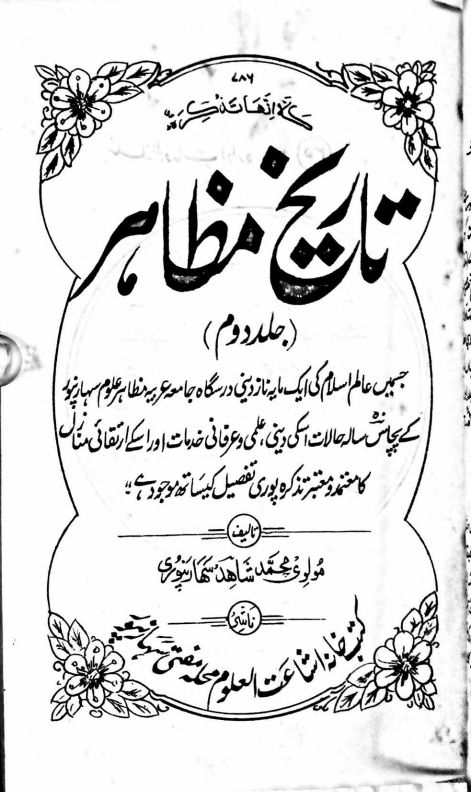 ۷۸۶
كلا إنها تذكرة
تاریخ مظاہر
(جلد دوم)
جسمیں عالم اسلام کی ایک مایہ ناز دینی درسگاہ جامعہ عربیہ مظاہر علوم سہارنپور
کے پچاس سالہ حالات اسکی دینی، علمی و عرفانی خدمات اور اسکے ارتقائی منازل
کا معتمد و معتبر تذکرہ پوری تفصیل کیساتھ موجود ہے؛؛
تالیف
مولوی محمد شاہد سہارنپوری
ناشر
کتب خانہ اشاعت العلوم محلہ مفتی سہارنپور